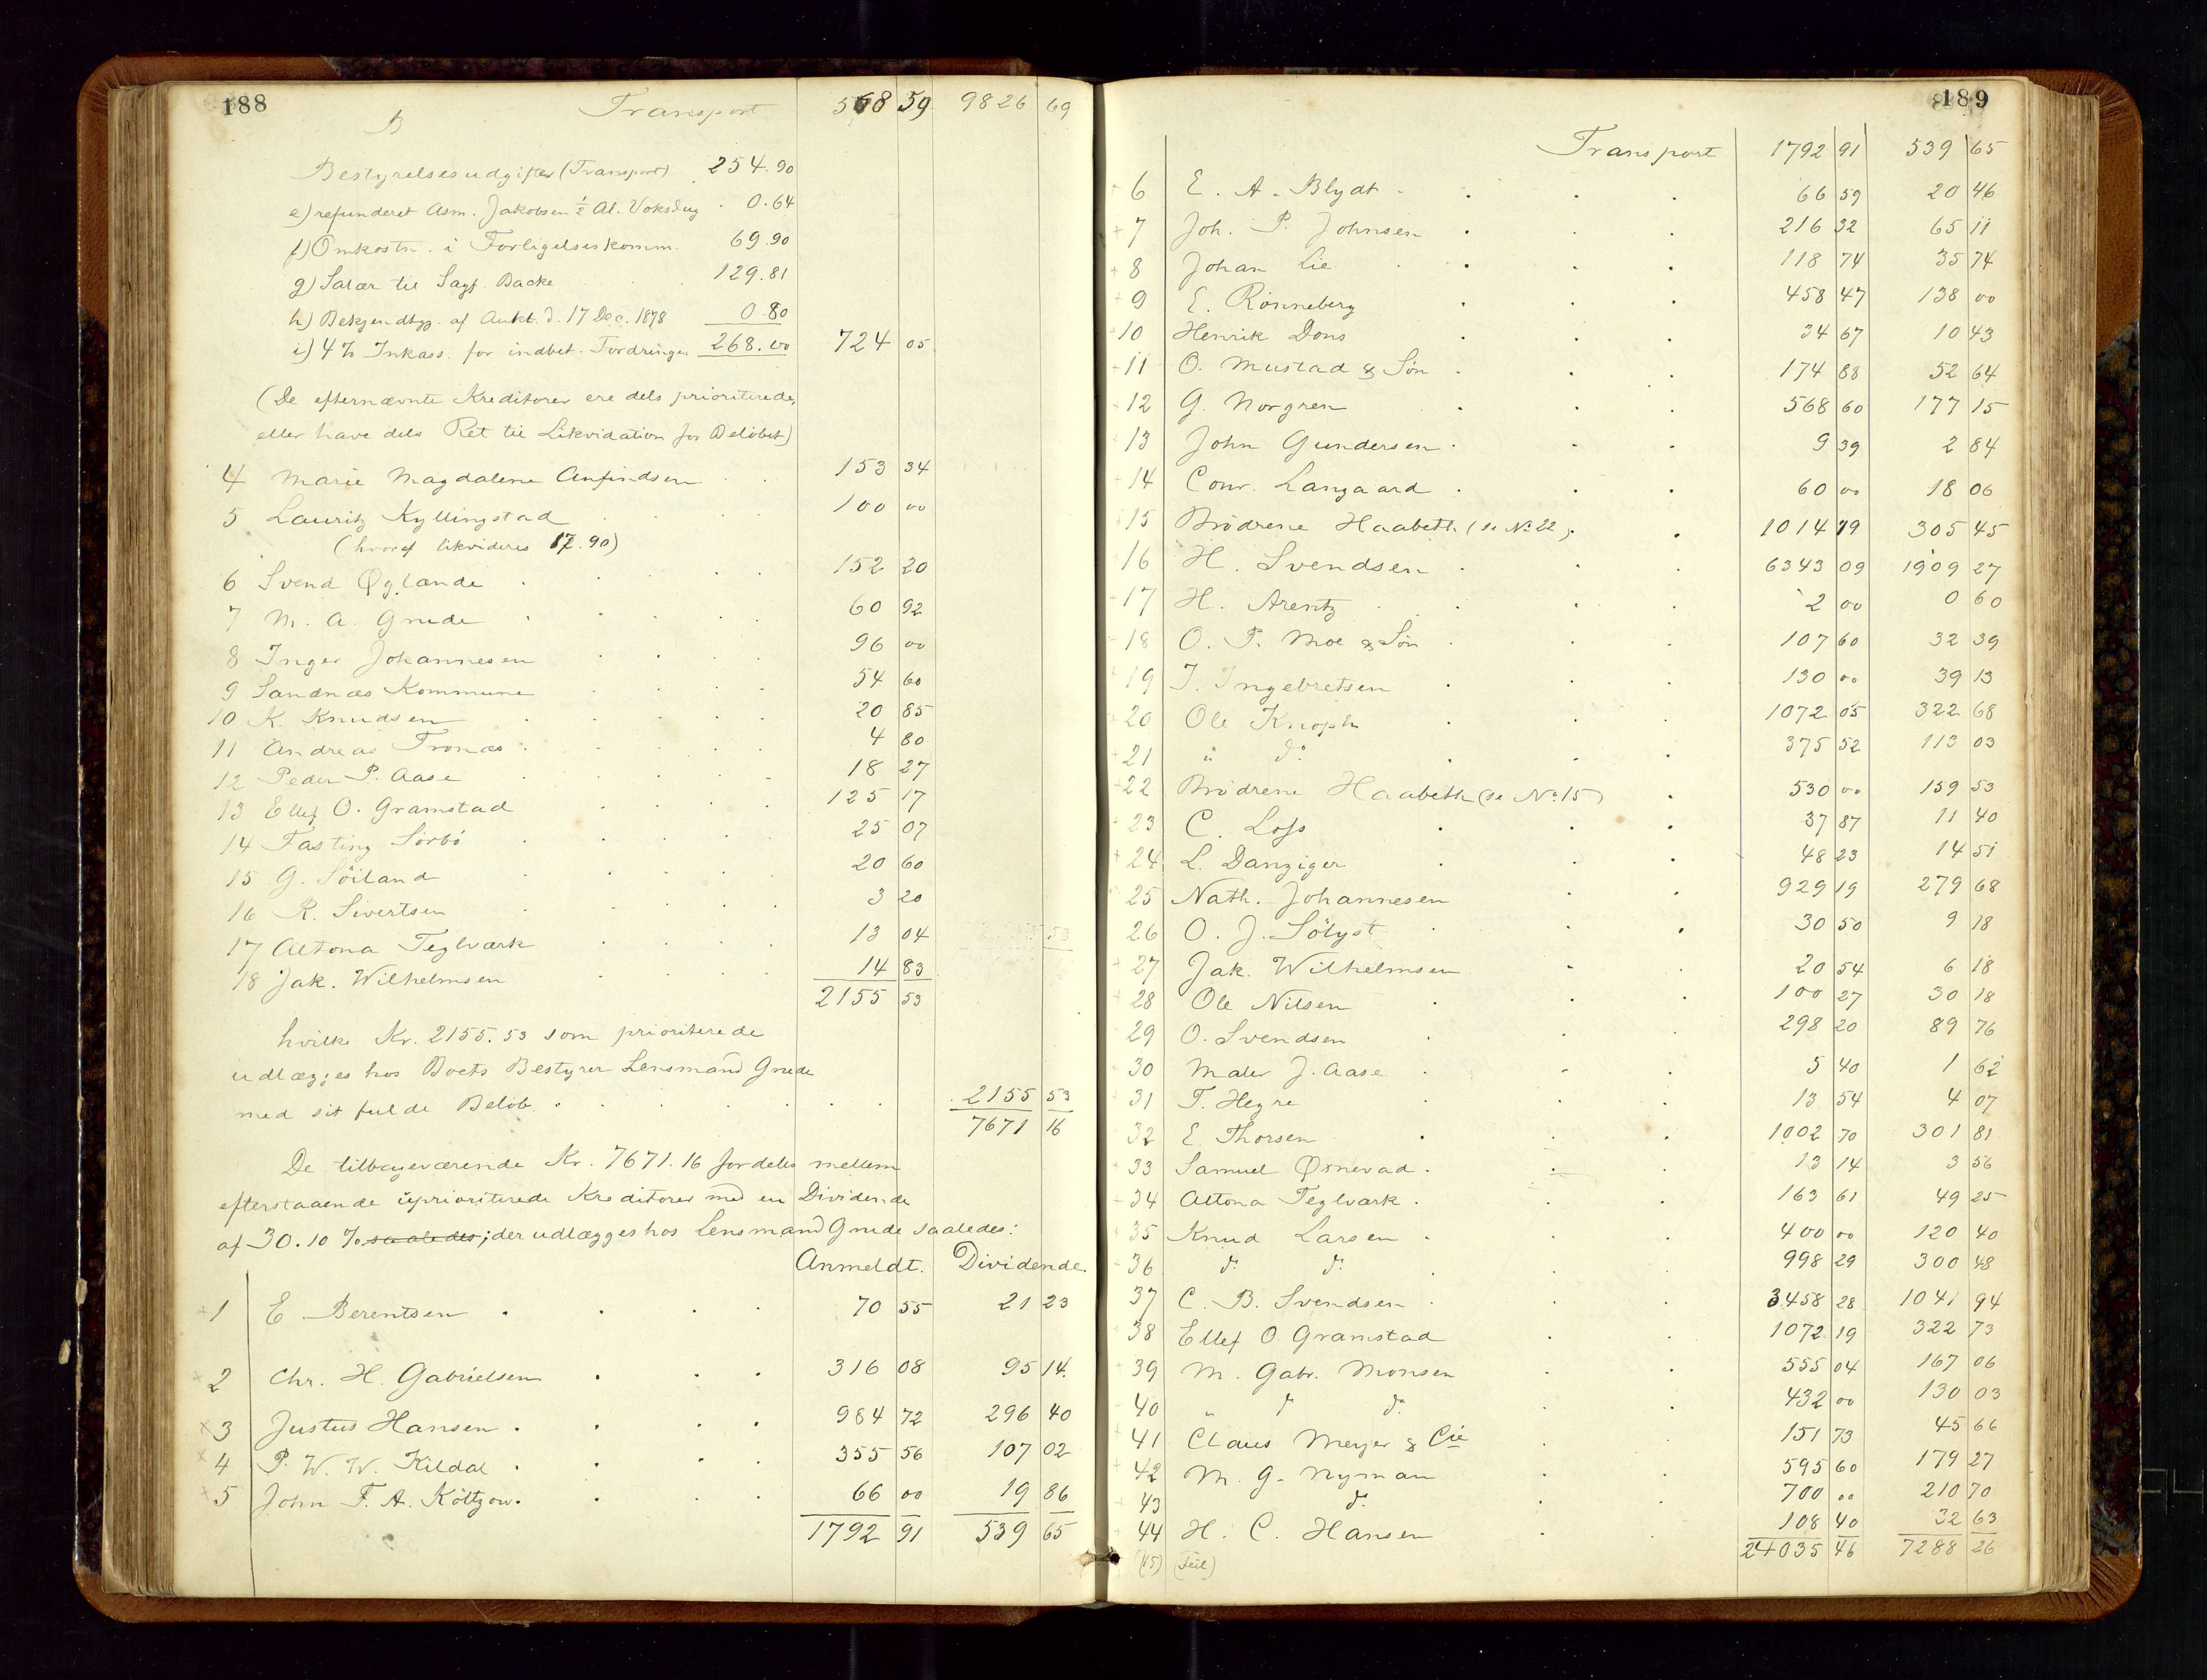 188
B Transport 568 59 9826 69
Bestyrelsesudgifter (Transport) 254.90
e) refunderet Asm. Jakobsen ½ Al. Voksdug 0.64
f) Omkostn. i Forligelseskomm. 69.90
g) Salær til Sagf. Backe 129.81
h) Bekjendtgj. af Aukt. d. 17 Dec. 1878 0.80
i) 4% Inkass. for indbet. Fordringer 268.00 724 05
(De efternævnte Kreditorer ere dels prioriterede,
eller have dels Ret til Likvidation for Beløbet)
4 Marie Magdalene Anfindsen 153 34
5 Lauritz Kyllingstad 100 00
(hvoraf likvideres 17.90)
6 Svend Øglænde 152 20
7 M. A. Grude 60 92
8 Inger Johannesen 96 00
9 Sandnæs Kommune 54 60
10 K. Knudsen 20 85
11 Andreas Tronæs 4 80
12 Peder P. Aase 18 27
13 Ellef O. Gramstad 125 17
14 Fasting Sörbö 25 07
15 G. Söiland 20 60
16 R. Sivertsen 3 20
17 Altona Teglværk 13 04
18 Jak. Wilhelmsen 14 83
2155 53
hvilke Kr. 2155.53 som prioriterede
udlægges hos Boets Bestyrer Lensmand Grude
med sit fulde Beløb. 2155 53
7671 16
De tilbageværende Kr. 7671.16 fordeles mellem
efterstaaende uprioriterede Kreditorer med en Dividende
af 30.10 % saaledes; der udlægges hos Lensmand Grude saaledes:
Anmeldt. Dividende.
1 E. Berentsen 70 55 21 23
2 Chr. H. Gabrielsen 316 08 95 14.
3 Justus Hansen 984 72 296 40
4 P. W. W. Kildal 355 56 107 02
5 John F. A. Költzow 66 00 19 86
1792 91 539 65
189
Transport 1792 91 539 65
6 E. A. Blydt 66 59 20 46
7 Joh. P. Johnsen 216 32 65 11
8 Johan Lie 118 74 35 74
9 E. Rönneberg 458 47 138 00
10 Henrik Dons 34 67 10 43
11 O. Mustad & Sön 174 88 52 64
12 G. Norgren 568 60 177 15
13 John Gundersen 9 39 2 84
14 Conr. Langaard 60 00 18 06
15 Brödrene Haabeth (se No 22) 1014 79 305 45
16 H. Svendsen 6343 09 1909 27
17 H. Arentz 2 00 0 60
18 O. P. Moe & Sön 107 60 32 39
19 J. Ingebretsen 130 00 39 13
20 Ole Knoph 1072 05 322 68
21 " do 375 52 113 03
22 Brödrene Haabeth (se No 15) 530 00 159 53
23 C. Loss 37 87 11 40
24 L. Danziger 48 23 14 51
25 Nath. Johannesen 929 19 279 68
26 O. J. Sölyst 30 50 9 18
27 Jak. Wilhelmsen 20 54 6 18
28 Ole Nilsen 100 27 30 18
29 O. Svendsen 298 20 89 76
30 Maler J. Aase 5 40 1 62
31 T. Hegre 13 54 4 07
32 E. Thorsen 1002 70 301 81
33 Samuel Øsnevad 13 14 3 56
34 Altona Teglværk 163 61 49 25
35 Knud Larsen 400 00 120 40
36 do do 998 29 300 48
37 C. B. Svendsen 3458 28 1041 94
38 Ellef O. Gramstad 1072 19 322 73
39 M. Gabr. Monsen 555 04 167 06
40 " do do 432 00 130 03
41 Claus Meyer & Cie 151 73 45 66
42 M. G. Nyman 595 60 179 27
43 do 700 00 210 70
44 H. C. Hansen 108 40 32 63
(45) (Feil) 24035 46 7288 26